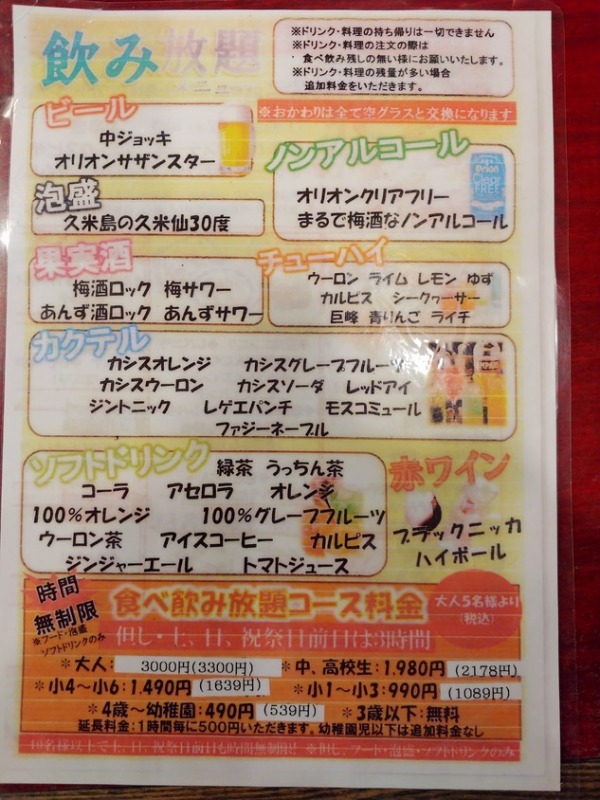 飲み放題
メニュー
※ドリンク・料理の持ち帰りは一切できません
※ドリンク・料理の注文の際は
・食べ飲み残しの無い様にお願いいたします。
※ドリンク・料理の残量が多い場合
追加料金をいただきます。
※おかわりは全て空グラスと交換になります
ビール
中ジョッキ
オリオンサザンスター
ノンアルコール
オリオンクリアフリー
まるで梅酒なノンアルコール
Orion
Clear
FREE
泡盛
久米島の久米仙30度
果実酒
梅酒ロック 梅サワー
あんず酒ロック あんずサワー
チューハイ
ウーロン ライム レモン ゆず
カルピス シークヮーサー
巨峰 青りんご ライチ
カクテル
カシスオレンジ カシスグレープフルーツ
カシスウーロン カシスソーダ レッドアイ
ジントニック レゲエパンチ モスコミュール
ファジーネーブル
ソフトドリンク
緑茶 うっちん茶
コーラ アセロラ オレンジ
100%オレンジ 100%グレープフルーツ
ウーロン茶 アイスコーヒー カルピス
ジンジャーエール トマトジュース
赤ワイン
ブラックニッカ
ハイボール
時間
無制限
※フード・泡盛
ソフトドリンクのみ
食べ飲み放題コース料金
大人5名様より
(税込)
但し・土、日、祝祭日前日は3時間
※大人: 3000円(3300円) ※中、高校生:1.980円(2178円)
※小4～小6:1.490円(1639円) ※小1～小3:990円(1089円)
※4歳～幼稚園:490円(539円) ※3歳以下:無料
延長料金:1時間毎に500円いただきます。幼稚園児以下は追加料金なし
10名様以上で土、日、祝祭日前日も時間無制限!! ※但し、フード・泡盛・ソフトドリンクのみ